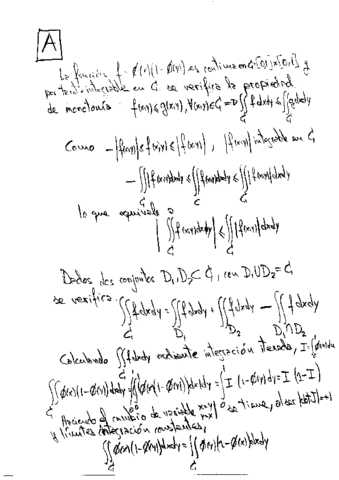 A
La función f = φ(x)(1-φ(y)) es continua en G=[0,1]x[0,1] y
por tanto integrable en G se verifica la propiedad
de monotonía f(x,y)≤g(x,y), ∀(x,y)∈G ⇒ ∬_G f dxdy ≤ ∬_G g dxdy
Como -|f(x,y)| ≤ f(x,y) ≤ |f(x,y)|, |f(x,y)| integrable en G
-∬_G |f(x,y)|dxdy ≤ ∬_G f(x,y)dxdy ≤ ∬_G |f(x,y)|dxdy
lo que equivale a
|∬_G f(x,y)dxdy| ≤ ∬_G |f(x,y)|dxdy
Dados dos conjuntos D₁, D₂ ⊂ G, con D₁∪D₂=G
se verifica ∬_G f dxdy = ∬_D₁ f dxdy + ∬_D₂ f dxdy - ∬_D₁∩D₂ f dxdy
Calculando ∬_G f dxdy mediante integración iterada, I=∫₀¹
∬_G φ(x)(1-φ(y))dxdy = ∫₀¹ (1-φ(y)) dy = I(1-I)
Haciendo el cambio de variable x=y y=x se tiene,
y límites integración constantes,
∬_G φ(x)(1-φ(y))dxdy = ∬_G φ(y)(1-φ(x))dxdy